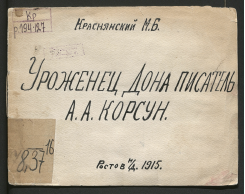 Кр
р.194-127
Краснянский М.Б.
Уроженец Дона писатель
А. А. Корсун.
16
837
Ростов н/Д. 1915.